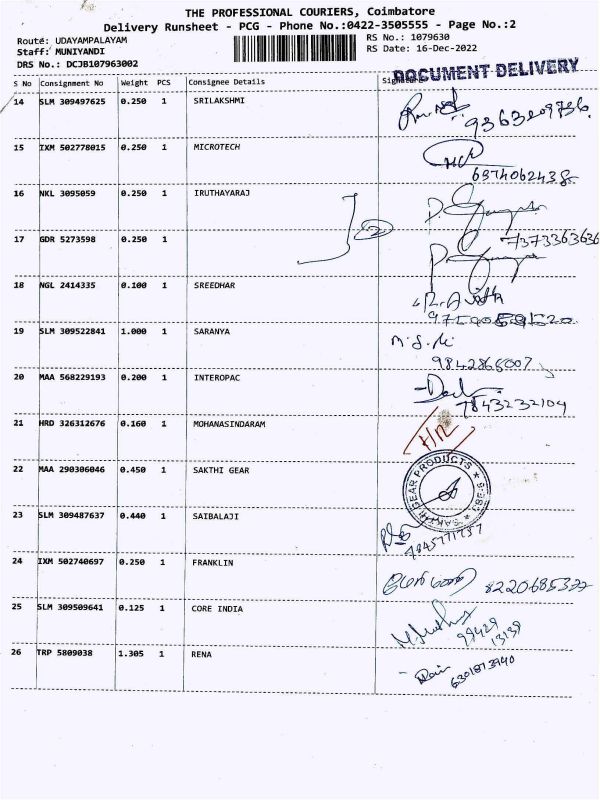 THE PROFESSIONAL COURIERS, Coimbatore
Delivery Runsheet - PCG - Phone No.:0422-3505555 - Page No.:2
Route: UDAYAMPALAYAM
RS No.: 1079630
Staff: MUNIYANDI
RS Date: 16-Dec-2022
DRS No.: DCJB107963002
DOCUMENT DELIVERY
S No Consignment No Weight PCS Consignee Details
14 SLM 309497625 0.250 1 SRILAKSHMI
15 IXM 502778015 0.250 1 MICROTECH
6374062438
16 NKL 3095059 0.250 1 IRUTHAYARAJ
2
17 GDR 5273598 0.250 1
7373363636
18 NGL 2414335 0.100 1 SREEDHAR
19 SLM 309522841 1.000 1 SARANYA
9842865007
20 MAA 568229193 0.200 1 INTEROPAC
7843232104
21 HRD 326312676 0.160 1 MOHANASINDARAM
22 MAA 290306046 0.450 1 SAKTHI GEAR
SAKTHI GEAR PRODUCTS
23 SLM 309487637 0.440 1 SAIBALAJI
24 IXM 502740697 0.250 1 FRANKLIN
25 SLM 309509641 0.125 1 CORE INDIA
99429
13139
26 TRP 5809038 1.305 1 RENA